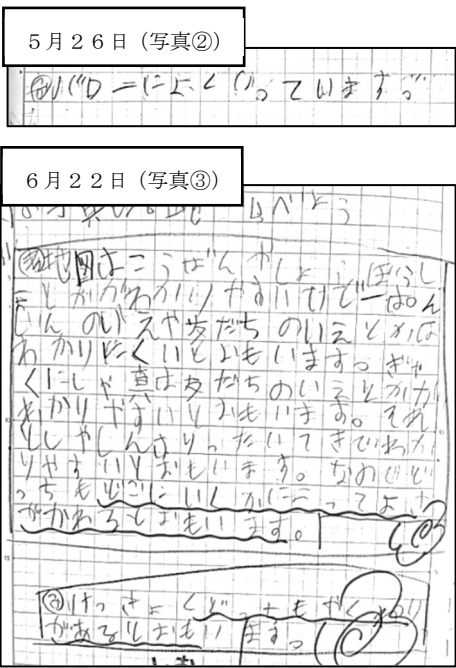 5月26日（写真②）
によくにっています。
6月22日（写真③）
地図はこうばんやしょうぼうし
ょとかがわかりやすいけど一ぱん
じんのいえや友だちのいえとかは
わかりにくいとおもいます。ぎゃ
くにしゃ真は友だちのいえとかが
わかりやすいとおもいます。それ
としゃしんはりったいてきでわか
りやすいとおもいます。なのでど
っちもどこにいくかによってよさ
がかわるとおもいます。
けっきょくどっちもやくわり
があるとおもいます。